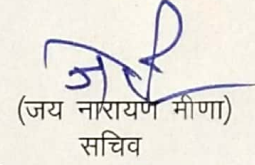 (जय नारायण मीणा)
सचिव